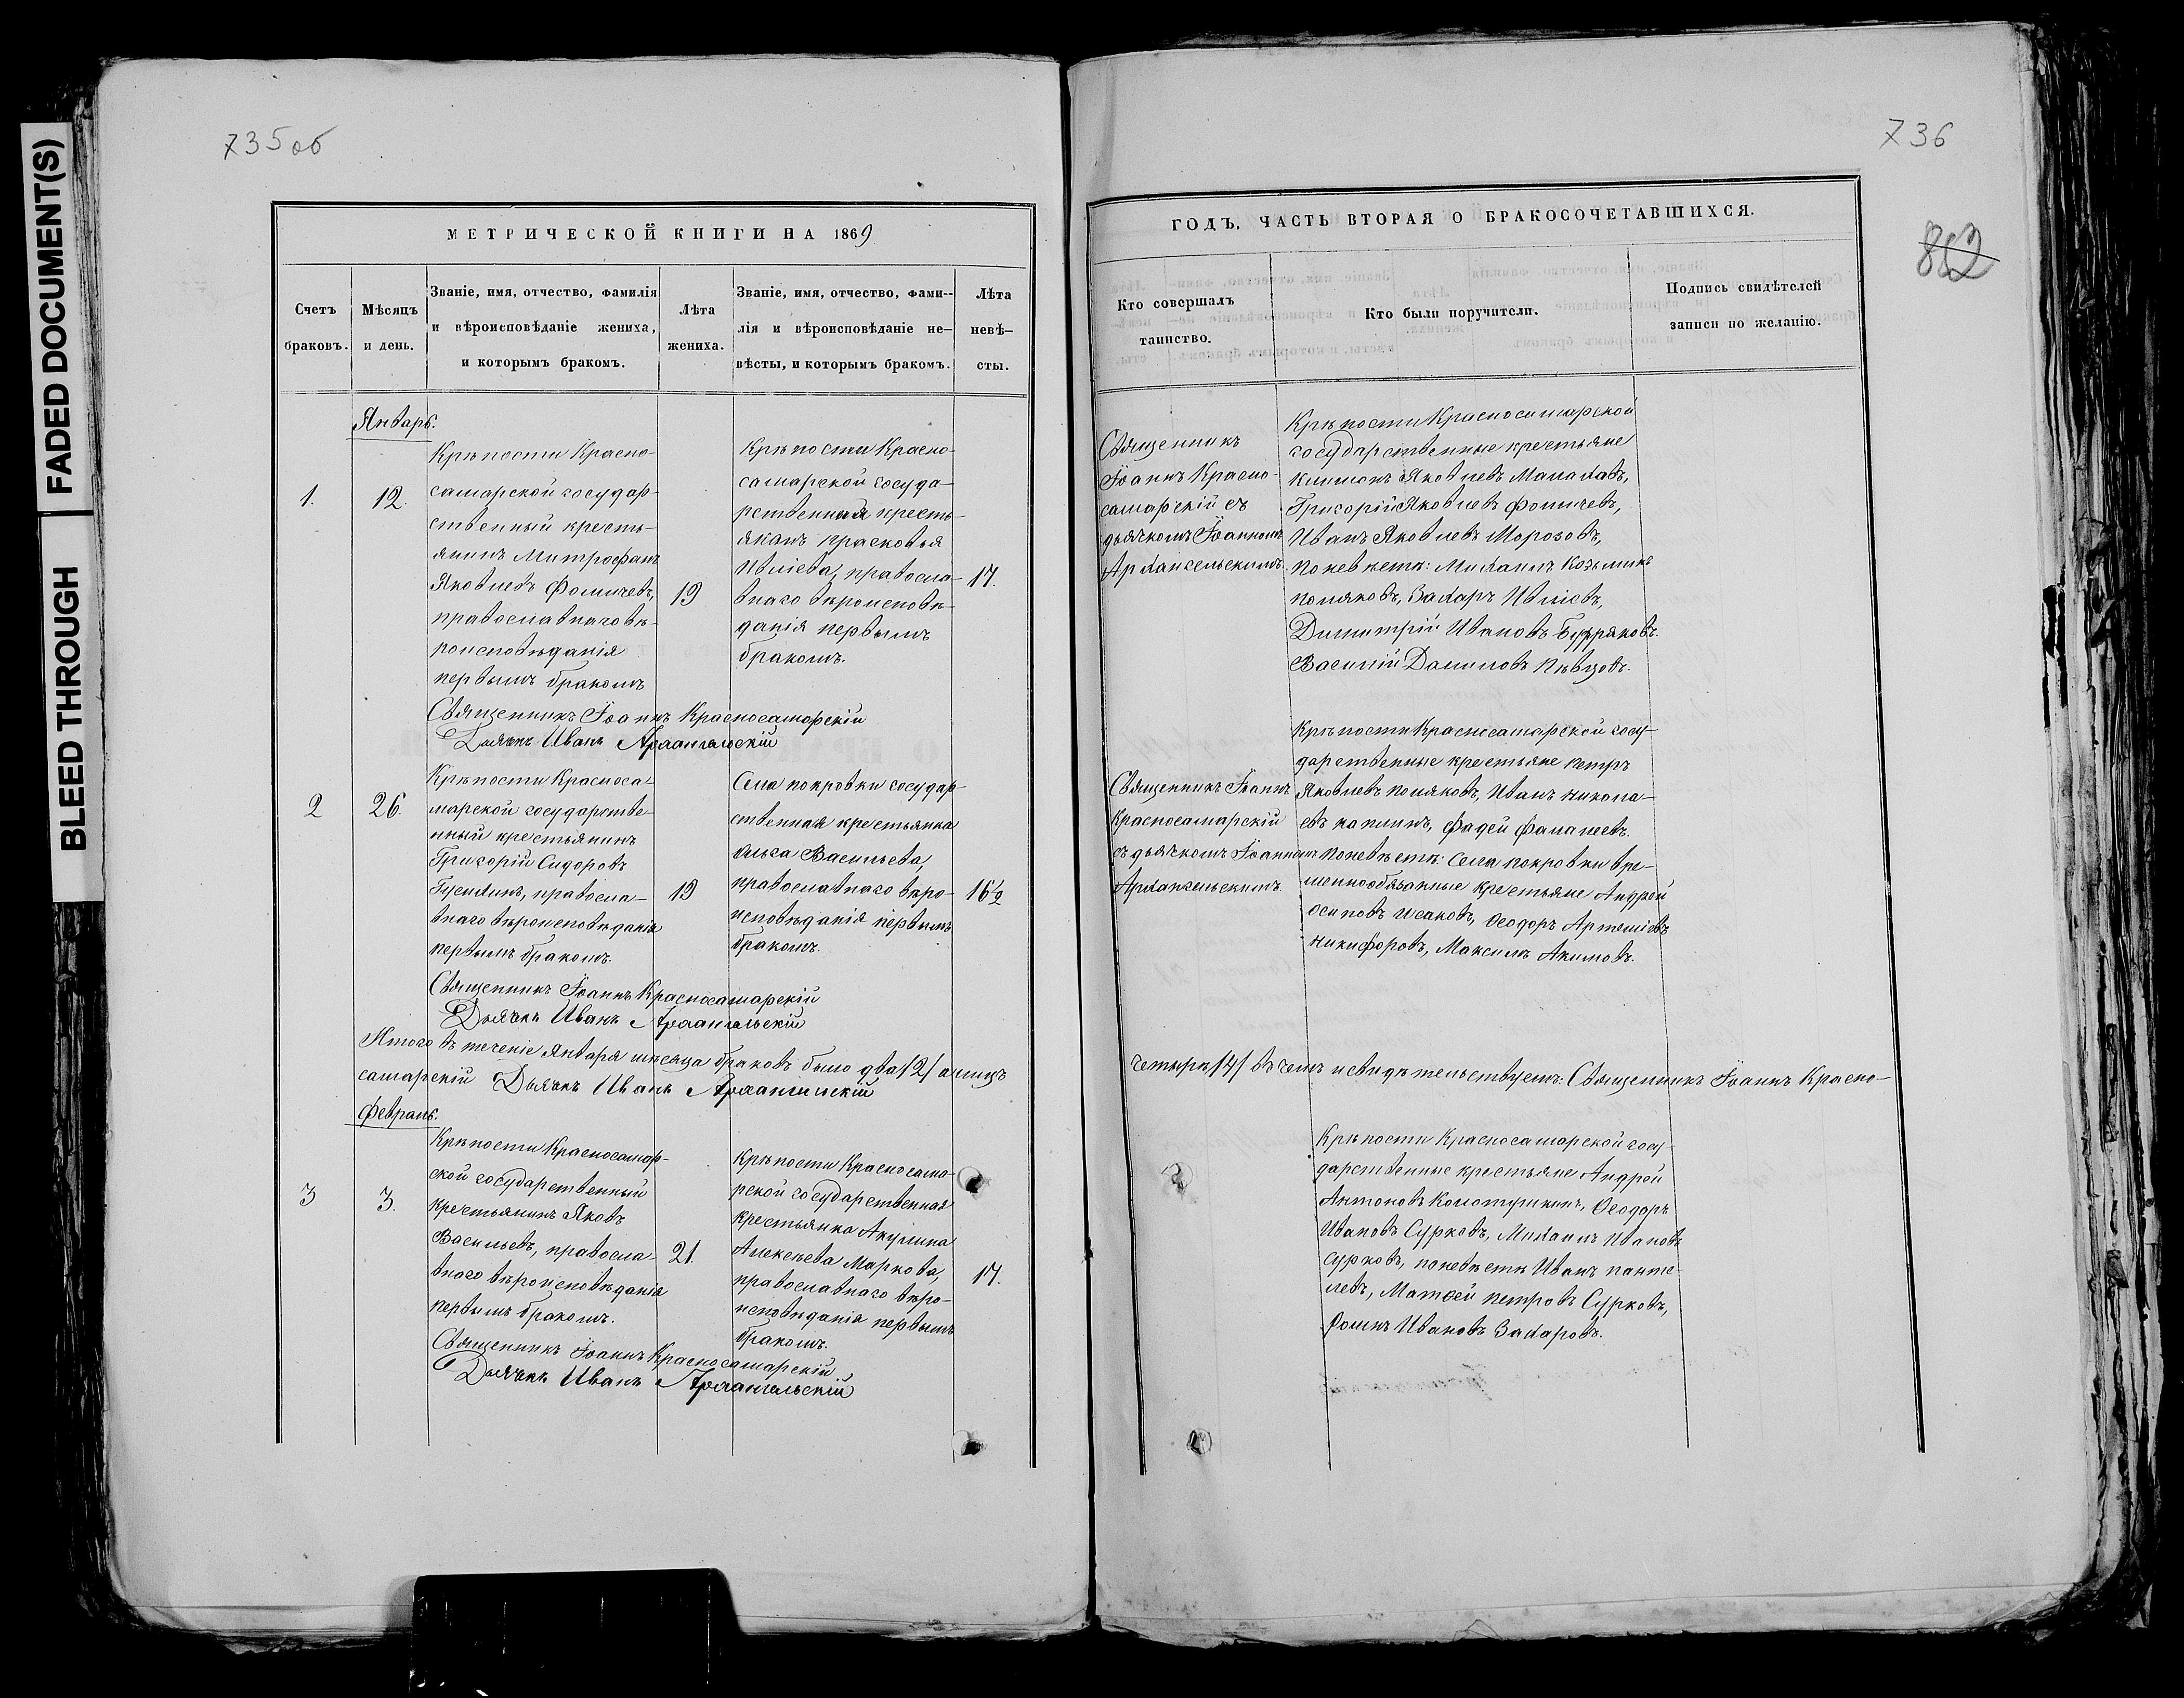 FADED DOCUMENT(S)
BLEED THROUGH
735об
МЕТРИЧЕСКОЙ КНИГИ НА 1869
Счетъ
браковъ.
Мѣсяцъ
и день.
Званіе, имя, отчество, фамилія
и вѣроисповѣданіе жениха,
и которымъ бракомъ.
Лѣта
жениха.
Званіе, имя, отчество, фами-
лія и вѣроисповѣданіе не-
вѣсты, и которымъ бракомъ.
Лѣта
невѣ-
сты.
Январь.
1.
12.
Крѣпости Красно-
самарской государ-
ственный кресть-
янинъ Митрофанъ
Яковлевъ Фомичевъ,
православнаго вѣ-
роисповѣданія
первымъ бракомъ
19
Крѣпости Красно-
самарской госуда-
рственная кресть-
Прасковья
Ивлiева, правосла-
внаго вѣроисповѣ-
данія первымъ
бракомъ.
17.
Священникъ Іоаннъ Красносамарскій
Дьячекъ Иванъ Архангельскій
2
26.
Крѣпости Красноса-
марской государстве-
нный крестьянинъ
Григорій Сидоровъ
правосла-
внаго вѣроисповѣданія
первымъ бракомъ.
19
Села Покровки государ-
ственная крестьянка
Ольга Васильева,
православнаго вѣро-
исповѣданія первымъ
бракомъ.
16½
Священникъ Іоаннъ Красносамарскій
Дьячекъ Иванъ Архангельскій
Итого въ теченіе Января мѣсяца браковъ было два /2/ а лицъ
самарскій Дьячекъ Иванъ Архангельскій
Февраль.
3
3.
Крѣпости Красносамар-
ской государственный
крестьянинъ Яковъ
Васильевъ, правосла-
внаго вѣроисповѣданія
первымъ бракомъ.
21.
Крѣпости Красносама-
рской государственная
крестьянка Акулина
Алексѣева Маркова,
православнаго вѣро-
исповѣданія первымъ
бракомъ.
17.
Священникъ Іоаннъ Красносамарскій
Дьячекъ Иванъ Архангельскій
736
802
ГОДЪ. ЧАСТЬ ВТОРАЯ О БРАКОСОЧЕТАВШИХСЯ.
Кто совершалъ
таинство.
Кто были поручители.
Подпись свидѣтелей
записи по желанію.
Священникъ
Іоаннъ Красно-
самарскій съ
дьячкомъ Іоанномъ
Архангельскимъ.
Крѣпости Красносамарской
государственные крестьяне
Яковлевъ Малаховъ,
Григорій Яковлевъ Фомичевъ,
Иванъ Яковлевъ Морозовъ,
По невѣстѣ: Михаилъ Козьминъ
Поляковъ, Захаръ Ивлiевъ,
Димитрій Ивановъ
Василій Даниловъ Пѣвцовъ.
Священникъ Іоаннъ
Красносамарскій
съ дьячкомъ Іоанномъ
Архангельскимъ.
Крѣпости Красносамарской госу-
дарственные крестьяне Петръ
Яковлевъ Поляковъ, Иванъ Никола-
евъ Каплинъ, Фадей
По невѣстѣ: Села Покровки вре-
меннообязанные крестьяне Андрей
Осиповъ Исаковъ, Ѳеодоръ Артемiевъ
Никифоровъ, Максимъ Акимовъ.
четыре /4/ въ чемъ и свидѣтельствуемъ: Священникъ Іоаннъ Красно-
Крѣпости Красносамарской госу-
дарственные крестьяне Андрей
Антоновъ Колотушкинъ, Ѳеодоръ
Ивановъ Сурковъ, Михаилъ Ивановъ
Сурковъ, по невѣстѣ Иванъ Панте-
левъ, Матѳей Петровъ Сурковъ,
Фома Ивановъ Захаровъ.